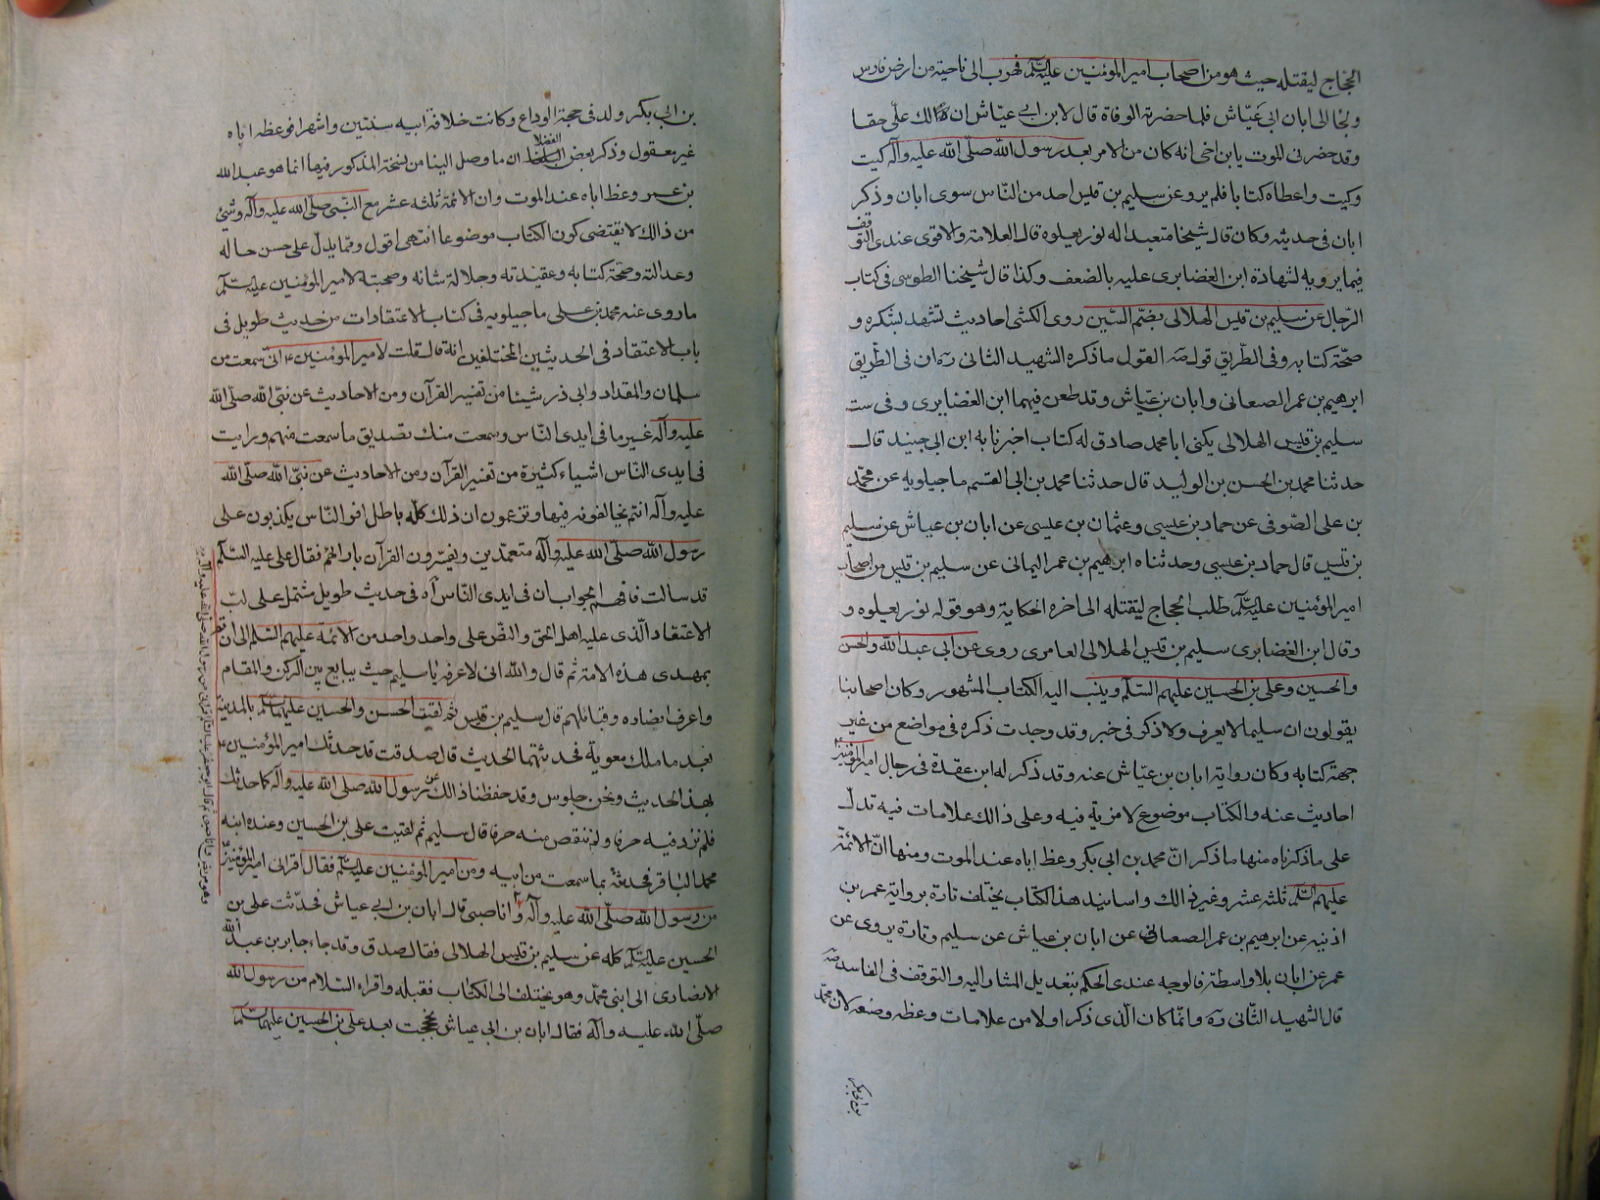 الحجاج ليقتله حيث هو من اصحاب امير المؤمنين عليه السلم فهرب الى ناحية من ارض فارس
ولجا الى ابان ابى عياش فلما حضرته الوفاة قال لابن ابى عياش ان لك على حقا
وقد حضرنى الموت يابن اخى انه كان من الامر بعد رسول الله صلى الله عليه وآله كيت
وكيت واعطاه كتابا فلم يرو عن سليم بن قليس احد من الناس سوى ابان وذكر
ابان فى حديثه وكان قال شيخا متعبدا له نور يعلوه قال العلامة والاقوى عندى التوقف
فيما يرويه لشهادة ابن الغضايرى عليه بالضعف وكذا قال شيخنا الطوسى فى كتاب
الرجال عن سليم بن قليس الهلالى بضم السين روى الكشى احاديث تشهد بشكره و
صحة كتابه وفى الطريق قول صه القول ما ذكره الشهيد الثانى ره ان فى الطريق
ابرهيم بن عمر الصنعانى وابان بن عياش وقد طعن فيهما ابن الغضايرى وفى ست
سليم بن قليس الهلالى يكنى ابا محمد صادق له كتاب اخبرنا به ابن ابى جنيد قال
حدثنا محمد بن الحسن بن الوليد قال حدثنا محمد بن ابى القسم ماجيلويه عن محمد
بن على الصوفى عن حماد بن عيسى وعثمان بن عيسى عن ابان بن عياش عن سليم
بن قليس قال حماد بن عيسى وحدثناه ابرهيم بن عمر اليمانى عن سليم بن قليس من اصحاب
امير المؤمنين عليه السلم طلب الحجاج ليقتله الى اخره الحكاية وهو قوله نور يعلوه و
وقال ابن الغضايرى سليم بن قليس الهلالى العامرى روى عن ابى عبد الله والحسن
والحسين وعلى بن الحسين عليهم السلم وينسب اليه الكتاب المشهور وكان اصحابنا
يقولون ان سليما لا يعرف ولا ذكر فى خبر وقد وجدت ذكره فى مواضع من غير
جهة كتابه وكان رواية ابان بن عياش عنه وقد ذكر له ابن عقدة فى رجال امير المؤمنين
احاديث عنه والكتاب موضوع لا مزية فيه وعلى ذالك علامات فيه تدل
على ما ذكرناه منها ما ذكر ان محمد بن ابى بكر وعظ اباه عند الموت ومنها ان الائمة
عليهم السلم ثلثه عشر وغير ذالك واسانيد هذا الكتاب يختلف تارة برواية عمر بن
اذنيه عن ابرهيم بن عمر الصنعانى عن ابان بن عياش عن سليم وتارة يروى عن
عمر عن ابان بلا واسطة فالوجه عندى الحكم بتعديل المشار اليه والتوقف فى الفاسد صه
قال الشهيد الثانى ره وانما كان الذى ذكر اولا من علامات وعظه وضعه لان محمد
بن ابى بكر
بن ابى بكر ولد فى حجة الوداع وكانت خلافة ابيه سنتين واشهرا فوعظه اباه
غير معقول وذكر بعض الفضلا ان ما وصل الينا من نسخة المذكور فيها انما هو عبد الله
بن عمر وعظ اباه عند الموت وان الائمة ثلثه عشر مع النبى صلى الله عليه وآله وشئ
من ذالك لا يقتضى كون الكتاب موضوعا انتهى اقول ومما يدل على حسن حاله
وعدالته وصحة كتابه وعقيدته وجلالة شانه وصحبته لامير المؤمنين عليه السلم
ما روى عنه محمد بن على ماجيلويه فى كتاب الاعتقادات من حديث طويل فى
باب الاعتقاد فى الحديثين المختلفين انه قال قلت لامير المؤمنين ع انى سمعت من
سلمان والمقداد وابى ذر شيئا من تفسير القرآن ومن الاحاديث عن نبى الله صلى الله
عليه وآله غير ما فى ايدى الناس وسمعت منك تصديق ما سمعت منهم ورايت
فى ايدى الناس اشياء كثيرة من تفسير القرآن ومن الاحاديث عن نبى الله صلى الله
عليه وآله انتم تخالفونه فيها وتزعمون ان ذلك كله باطل افو الناس يكذبون على
رسول الله صلى الله عليه وآله متعمدين ويفسرون القرآن بارائهم فقال على عليه السلم
قد سالت فافهم الجواب ان فى ايدى الناس آه فى حديث طويل شتمل على لب
الاعتقاد الذى عليه اهل الحق والنص على واحد واحد من الائمة عليهم السلم الى ان قطر
بمهدى هذه الامة ثم قال والله انى لاعرفه يا سليم حيث يبايع بين الركن والمقام
واعرف انصاره وقبائلهم قال سليم بن قليس ثم لقيت الحسن والحسين عليهما السلم بالمدينة
بعد ما ملك معوية فحدثتهما الحديث قال صدقت قد حدثك امير المؤمنين ع
بهذا الحديث ونحن جلوس وقد حفظنا ذالك عن رسول الله صلى الله عليه وآله كما حدثك
فلم نزد فيه حرفا ولم ننقص منه حرفا قال سليم ثم لقيت على بن الحسين وعنده ابنه
محمد الباقر فحدثته بما سمعت من ابيه ومن امير المؤمنين عليه السلم فقال اقرانى امير المؤمنين
من رسول الله صلى الله عليه وآله وانا صبى قال ابان بن ابى عياش فحدثت على بن
الحسين عليه السلم كله عن سليم بن قليس الهلالى فقال صدق وقد جاء جابر بن عبد الله
الانصارى الى ابنى محمد وهو يختلف الى الكتاب فقبله واقراء السلام من رسول الله
صلى الله عليه وآله فقال ابان بن ابى عياش فحججت بعد على بن الحسين عليهما السلم